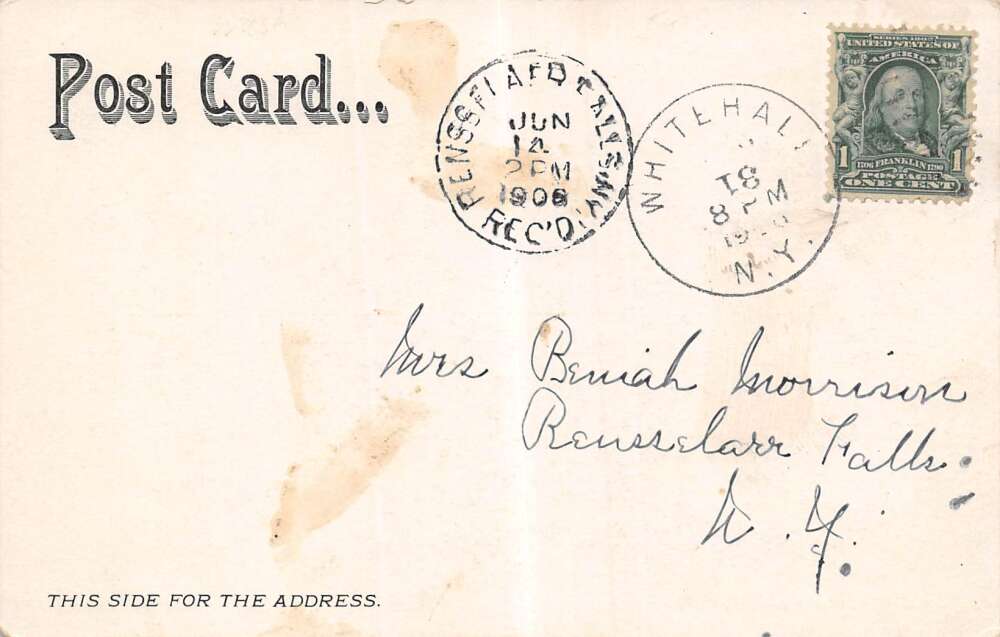 Post Card...
RENSSELAER FALLS N.Y.
JUN
14
2 PM
1906
REC'D.
WHITEHALL
8 PM
N.Y.
SERIES 1902
UNITED STATES OF
AMERICA
1706 FRANKLIN 1790
1 POSTAGE 1
ONE CENT
Mrs Beniah Morrison
Rensselarr Falls.
N. Y.
THIS SIDE FOR THE ADDRESS.